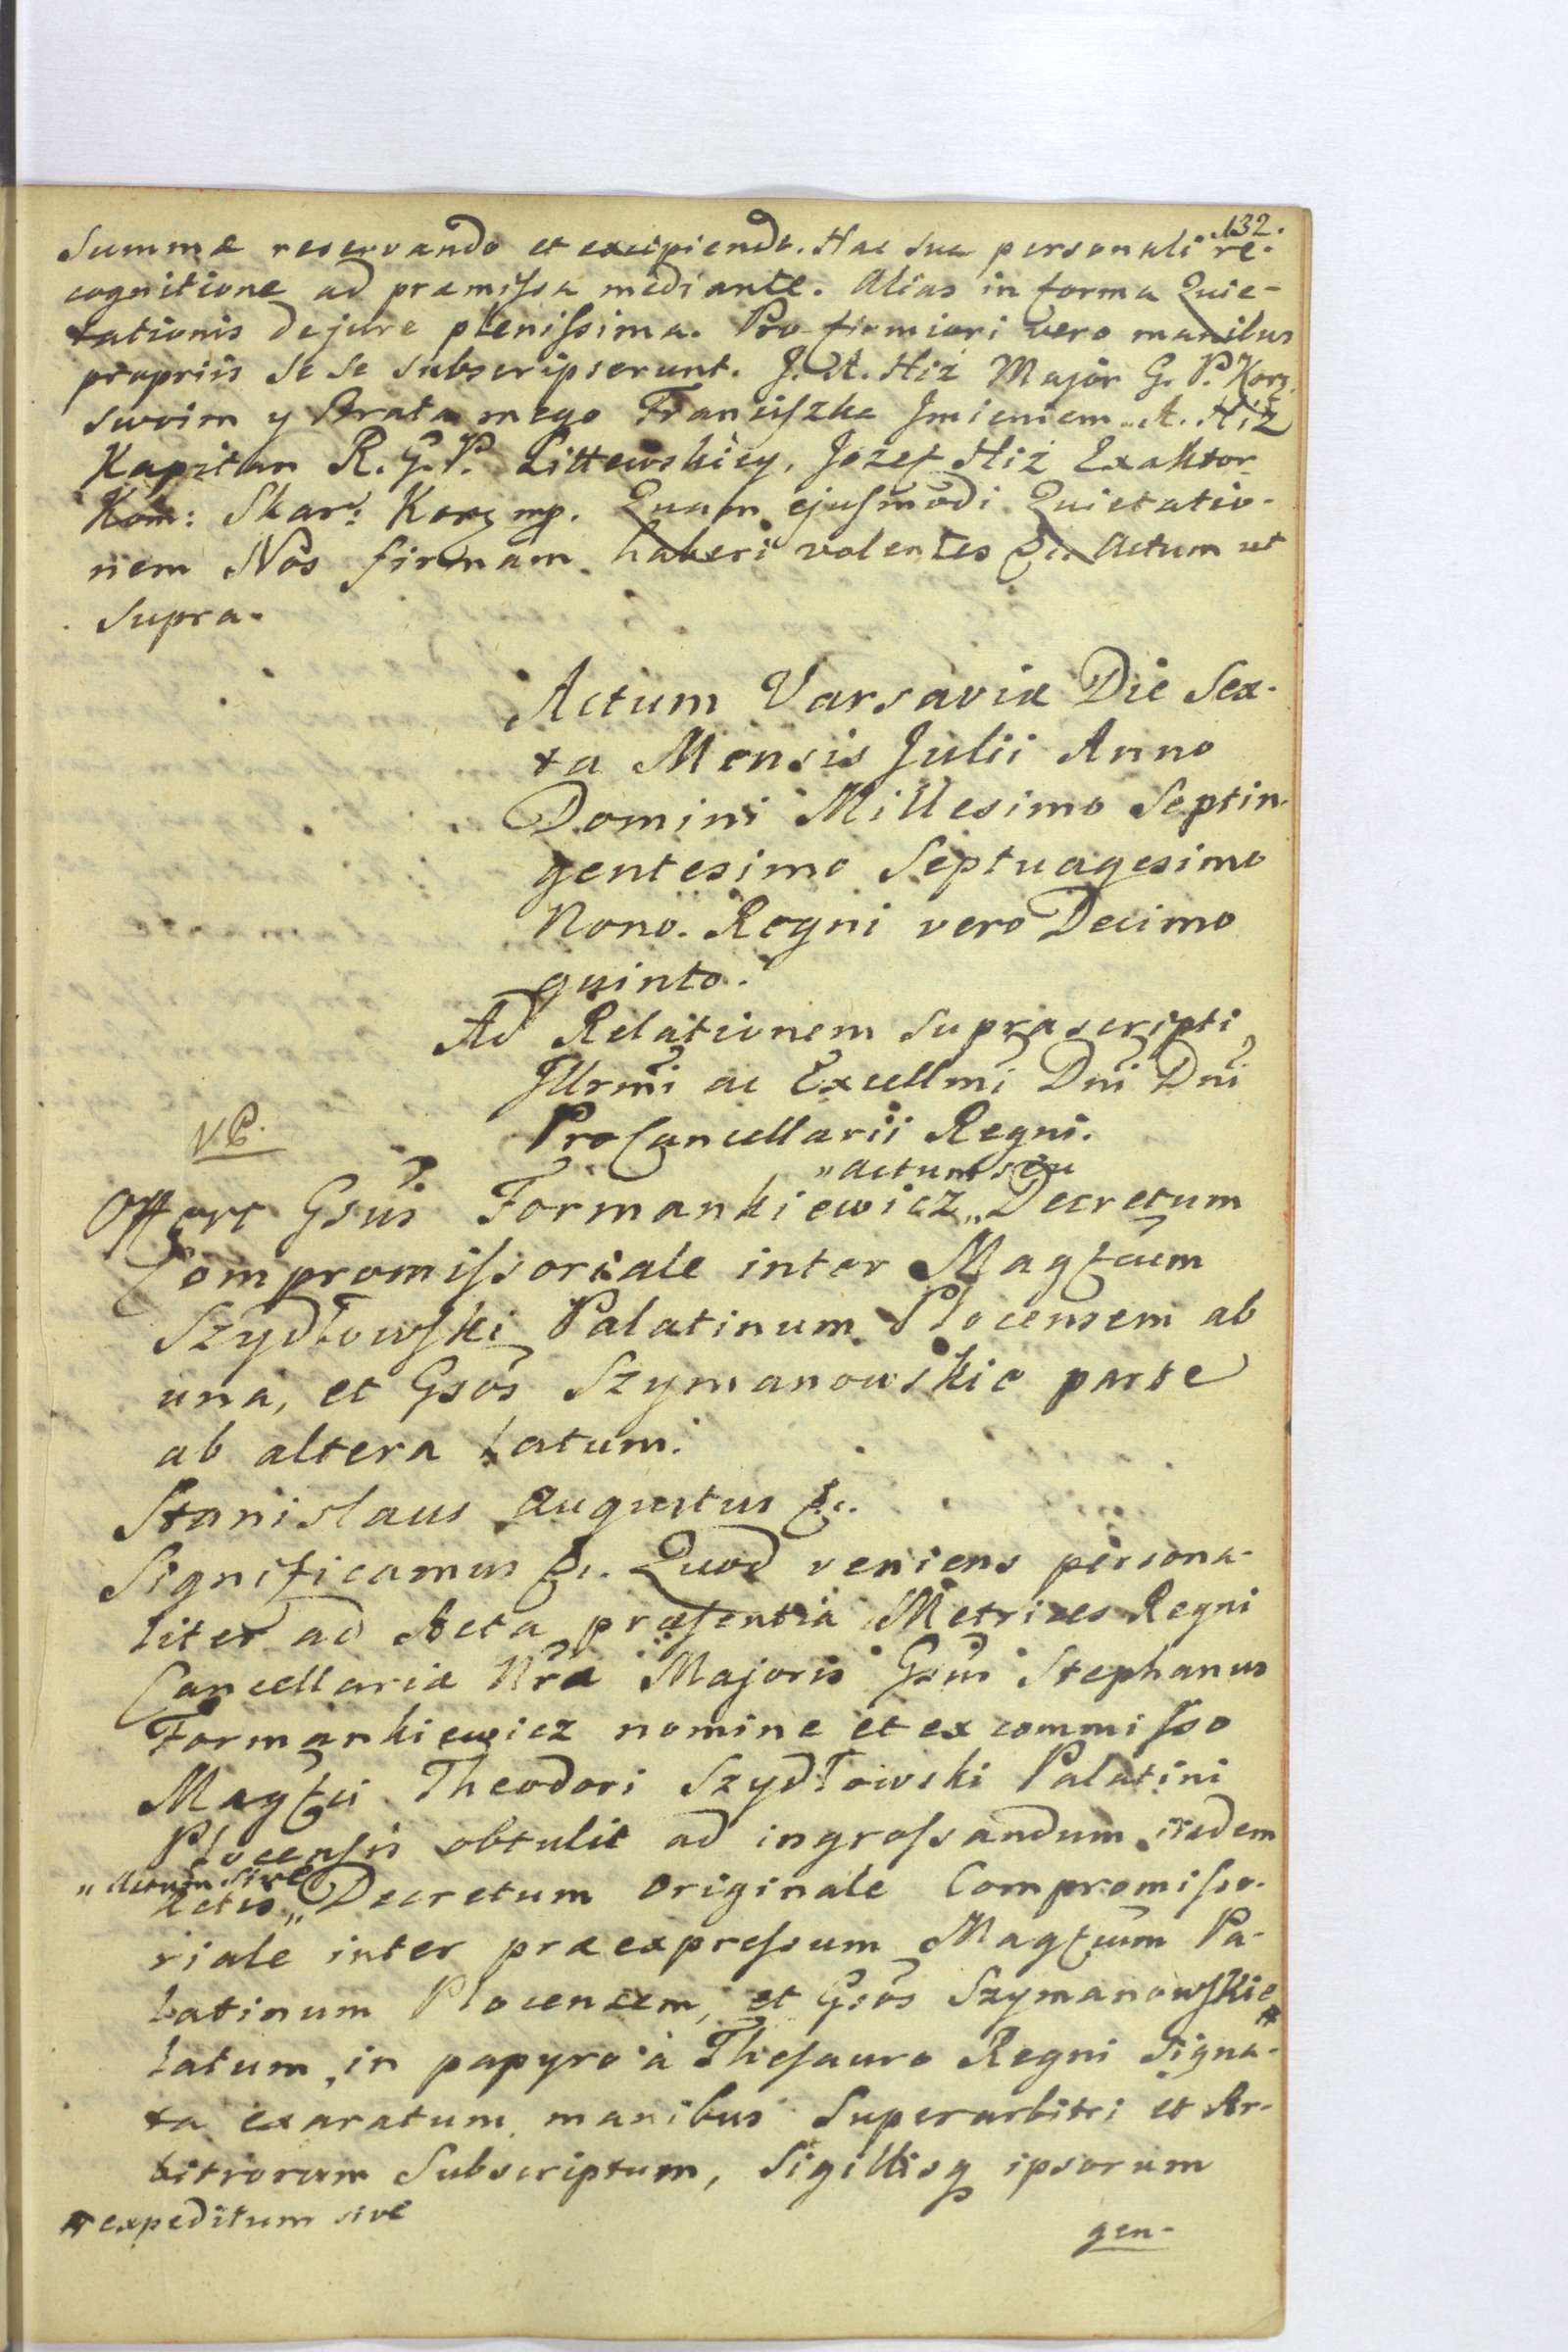 132.
Summæ reservando et excipiendo. Hac sua personali re-
cognitione ad præmissa mediante. Alias in forma Quie-
tationis de jure plenissima. Pro firmiori vero manibus
propriis se se subscripserunt. J. A. Hiż Major G. P. Korz.
swoim y Brata mego Franciszka Jmieniem. A. Hiż
Kapitan R. G. P. Littewskiey, Jozef Hiż Exaktor
Kom: Skar: Korz mp. Quam ejusmodi Quietatio-
nem Nos firmam haberi volentes &c. Actum ut
supra.
Actum Varsaviæ Die Sex-
ta Mensis Julii Anno
Domini Millesimo Septin-
gentesimo Septuagesimo
Nono. Regni vero Decimo
quinto.
Ad Relationem suprascripti
Jllrmi ac Excellmi Dni Dni
ProCancellarii Regni.
V.C.
„actum seu
Offert Gsus Formankiewicz „ Decretum
Compromissoriale inter Magtcum
Szydłowski Palatinum Plocensem ab
una, et Gsos Szymanowskie parte
ab altera latum.
Stanislaus Augustus &c.
Significamus &c. Quod veniens persona-
liter ad Acta præsentia Metrices Regni
Cancellariæ Nræ Majoris Gsus Stephanus
Formankiewicz nomine et ex commisso
Magtci Theodori Szydłowski Palatini
Plocensis obtulit ad ingrossandum iisdem
„actum sive
Actis „ Decretum originale Compromisso-
riale inter præexpressum Magtcum Pa-
latinum Plocensem, et Gsos Szymanowskie #
latum, in papyro à Thesauro Regni signa-
ta exaratum manibus Superarbitri et Ar-
bitrorum Subscriptum, Sigillisq ipsorum
# expeditum sive
gen-